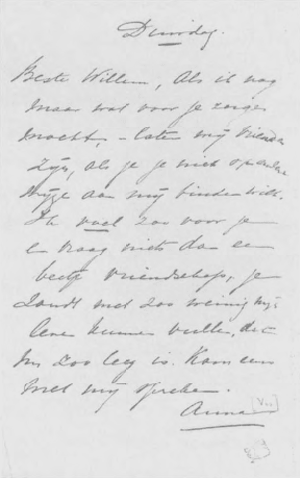 Dinsdag.
Beste Willem, Als ik nog
maar wat voor je zorgen
mocht, - laten mij vrienden
zijn, als je je niet op andere
wijze aan mij binden wilt.
Ik voel zoo voor je
en vraag niets dan een
beetje vriendschap, je
zoudt met zoo weinig mijn
leven kunnen vullen, dat
nu zoo leeg is. Kom eens
met mij spreken.
Anna
[V..]